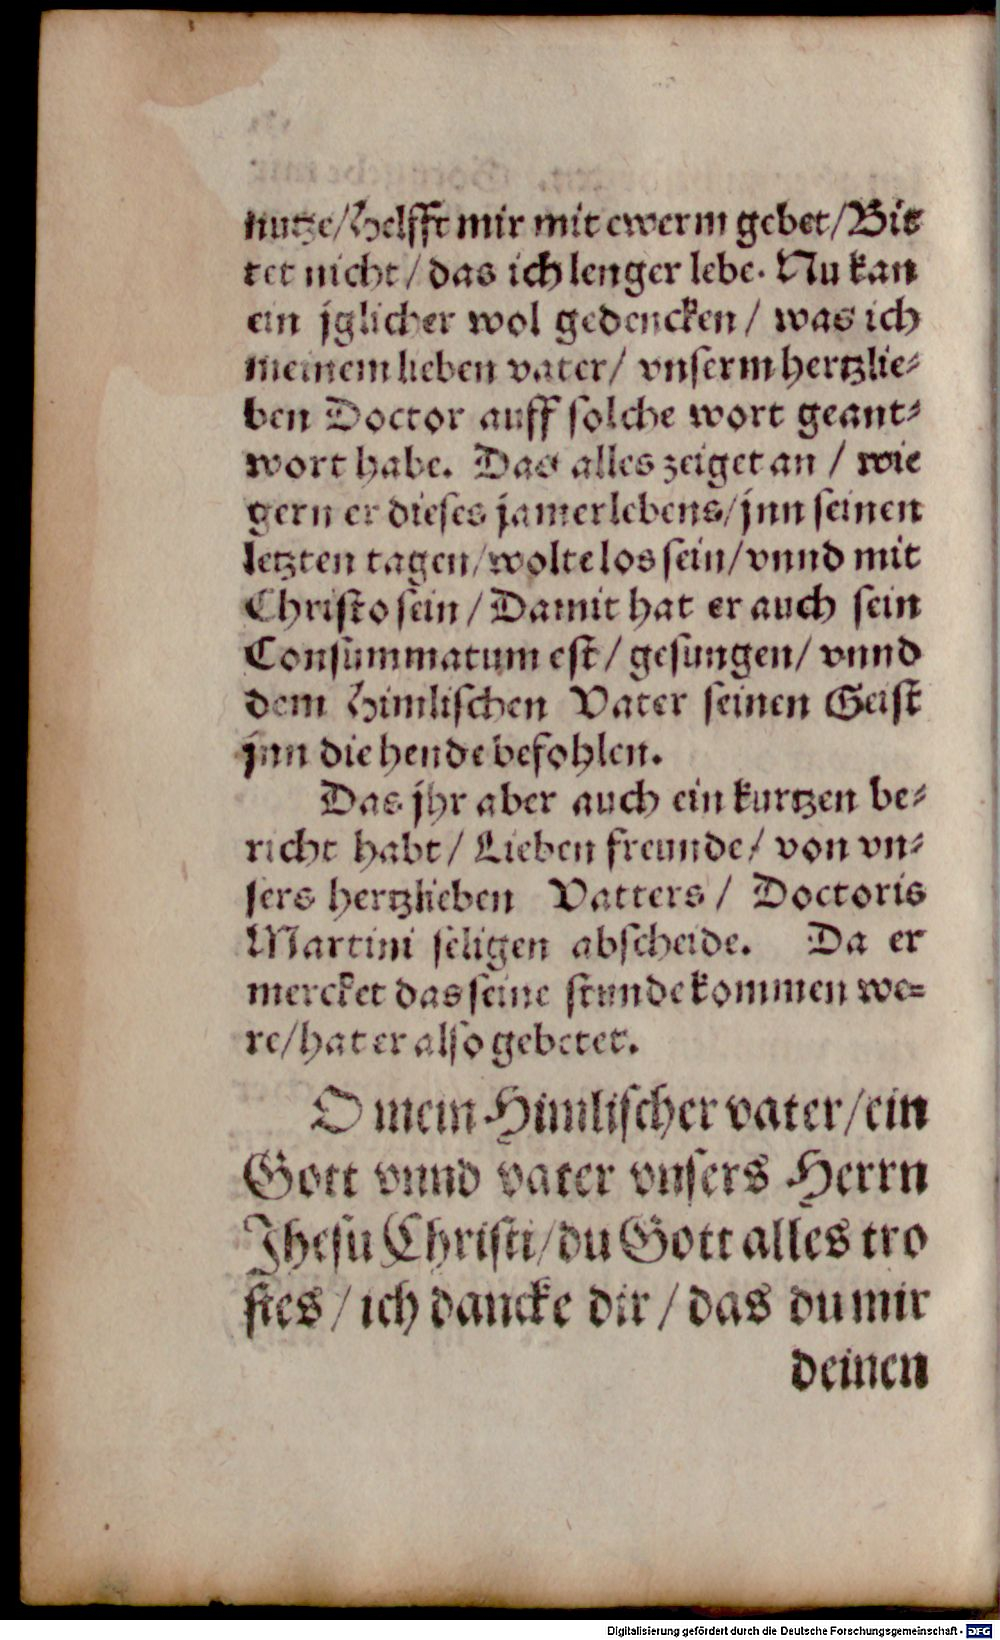 nutze/Helfft mir mit ewerm gebet/Bit
tet nicht/ das ich lenger lebe. Nu kan
ein jglicher wol gedencken/ was ich
meinem lieben vater/ vnserm hertzlie-
ben Doctor auff solche wort geant-
wort habe. Das alles zeiget an / wie
gern er dieses jamerlebens/jnn seinen
letzten tagen/wolte los sein/vnnd mit
Christo sein / Damit hat er auch sein
Consummatum est/ gesungen/ vnnd
dem Himlischen Vater seinen Geist
jnn die hende befohlen.
Das jhr aber auch ein kurtzen be-
richt habt/ Lieben freunde/ von vn-
sers hertzlieben Vatters/ Doctoris
Martini seligen abscheide. Da er
mercket das seine stunde kommen we-
re/hat er also gebetet.
O mein Himlischer vater/ein
Gott vnnd vater vnsers Herrn
Jhesu Christi/du Gott alles tro
stes/ich dancke dir/das du mir
deinen
Digitalisierung gefördert durch die Deutsche Forschungsgemeinschaft - DFG